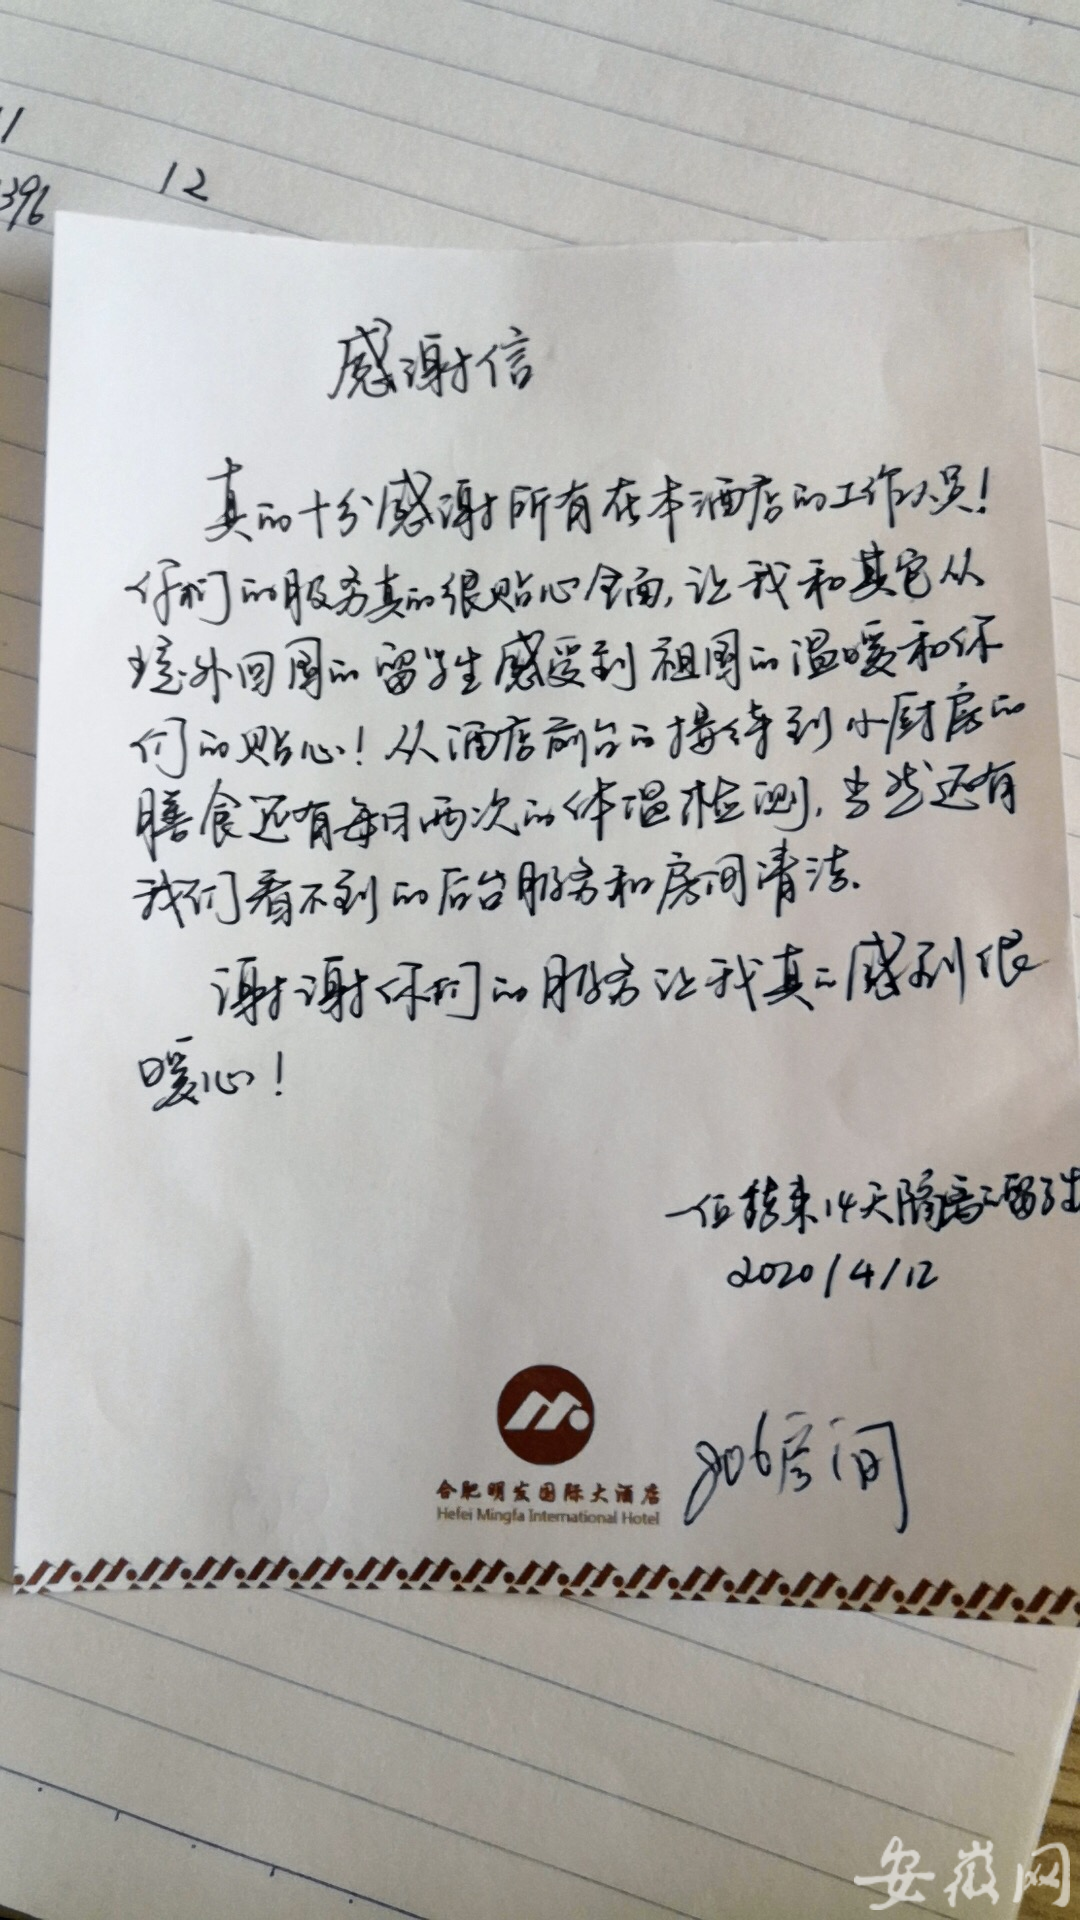 11
396
12
感谢信
真的十分感谢所有在本酒店的工作人员！
你们的服务真的很贴心全面，让我和其它从
境外回国的留学生感受到祖国的温暖和你
们的贴心！从酒店前台的接待到小厨房的
膳食还有每日两次的体温检测，当然还有
我们看不到的后台服务和房间清洁.
谢谢你们的服务让我真的感到很
暖心！
一位结束14天隔离之留学生
2020/4/12
806房间
合肥明发国际大酒店
Hefei Mingfa International Hotel
安徽网